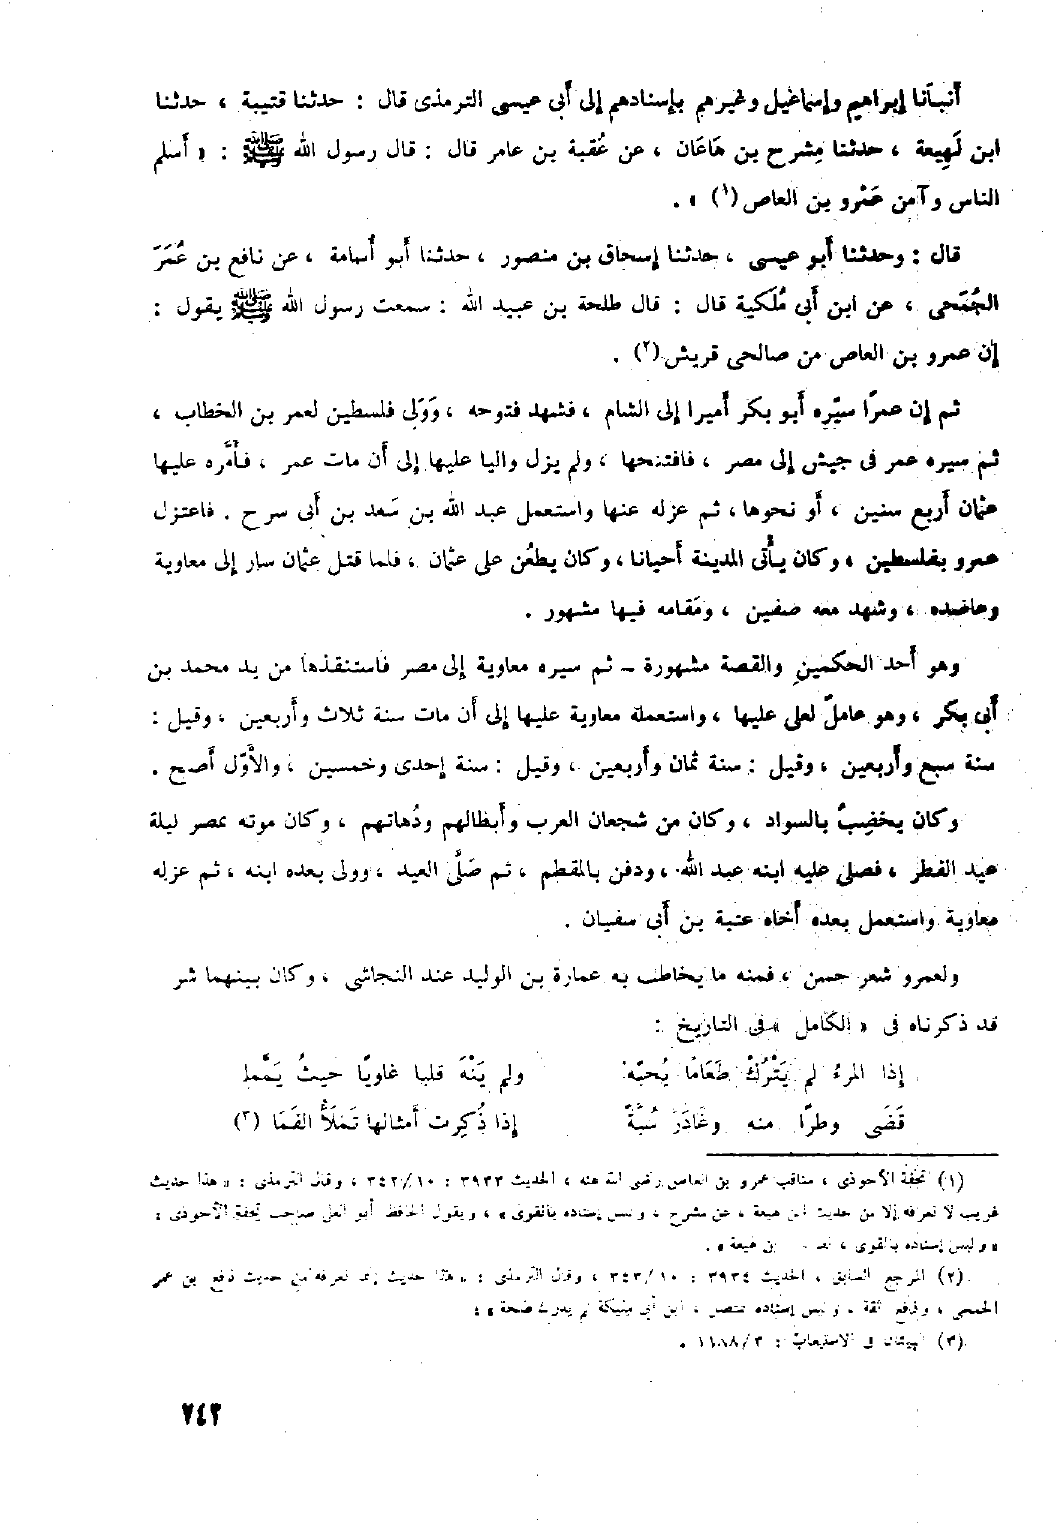 أنبأنا إبراهيم وإسماعيل وغيرهم بإسنادهم إلى أبى عيسى الترمذى قال : حدثنا قتيبة ، حدثنا
ابن لَهِيعة ، حدثنا مِشرح بن هَاعَان ، عن عُقبة بن عامر قال : قال رسول الله ﷺ : « أسلم
الناس وآمن عَمْرو بن العاص (١) » .
قال : وحدثنا أبو عيسى ، حدثنا إسحاق بن منصور ، حدثنا أبو أُسامة ، عن نافع بن عُمَرَ
الجُمَحى ، عن ابن أبى مُلَكية قال : قال طلحة بن عبيد الله : سمعت رسول الله ﷺ يقول :
إن عمرو بن العاص من صالحى قريش (٢) .
ثم إن عمرًا سيّره أبو بكر أميرا إلى الشام ، فشهد فتوحه ، وَوَلى فلسطين لعمر بن الخطاب ،
ثم سيره عمر فى جيش إلى مصر ، فافتتحها ، ولم يزل واليا عليها إلى أن مات عمر ، فأمَّره عليها
عثمان أربع سنين ، أو نحوها ، ثم عزله عنها واستعمل عبد الله بن سَعد بن أبى سرح . فاعتزل
عمرو بفلسطين ، وكان يأتى المدينة أحيانا ، وكان يطعُن على عثمان ، فلما قتل عثمان سار إلى معاوية
وعاضده ، وشهد معه صفين ، ومَقامه فيها مشهور .
وهو أحد الحكمين والقصة مشهورة – ثم سيره معاوية إلى مصر فاستنقذها من يد محمد بن
أبى بكر ، وهو عاملٌ لعلى عليها ، واستعمله معاوية عليها إلى أن مات سنة ثلاث وأربعين ، وقيل :
سنة سبع وأربعين ، وقيل : سنة ثمان وأربعين ، وقيل : سنة إحدى وخمسين ، والأوّل أصح .
وكان يخضِبُ بالسواد ، وكان من شجعان العرب وأبطالهم ودُهاتهم ، وكان موته بمصر ليلة
عيد الفطر ، فصلى عليه ابنه عبد الله ، ودفن بالمقطم ، ثم صَلَّى العيد ، وولى بعده ابنه ، ثم عزله
معاوية واستعمل بعده أخاه عتبة بن أبى سفيان .
ولعمرو شعر حسن ، فمنه ما يخاطب به عمارة بن الوليد عند النجاشى ، وكان بينهما شر
قد ذكرناه فى « الكامل » فى التاريخ :
إذا المرءُ لم يَتْرُكْ طَعَامًا يُحبّه ولم يَنْهَ قلبا غاويًا حيثُ يَمَّما
قَضَى وطرًا منه وغَادَرَ سُبَّةً إذا ذُكِرت أمثالها تَملأُ الفَمَا (٣)
(١) تحفة الأحوذى ، مناقب عمرو بن العاص رضى الله عنه ، الحديث ٣٩٣٣ : ٣٤٢/١٠ ، وقال الترمذى : « هذا حديث
غريب لا نعرفه إلا من حديث ابن لهيعة ، عن مشرح ، وليس إسناده بالقوى » ، ويقول الحافظ أبو العلى صاحب تحفة الأحوذى :
« وليس إسناده بالقوى ، بن لهيعة » .
(٢) المرجع السابق ، الحديث ٣٩٣٤ : ٣٤٣/١٠ ، وقال الترمذى : « هذا حديث إنما نعرفه من حديث نافع بن عمر
الجمحى ، ونافع ثقة ، وليس إسناده بمتصل ، ابن أبى مليكة لم يدرك طلحة » .
(٣) البيتان فى الاستيعاب : ١١٨٨/٣ .
٢٤٣